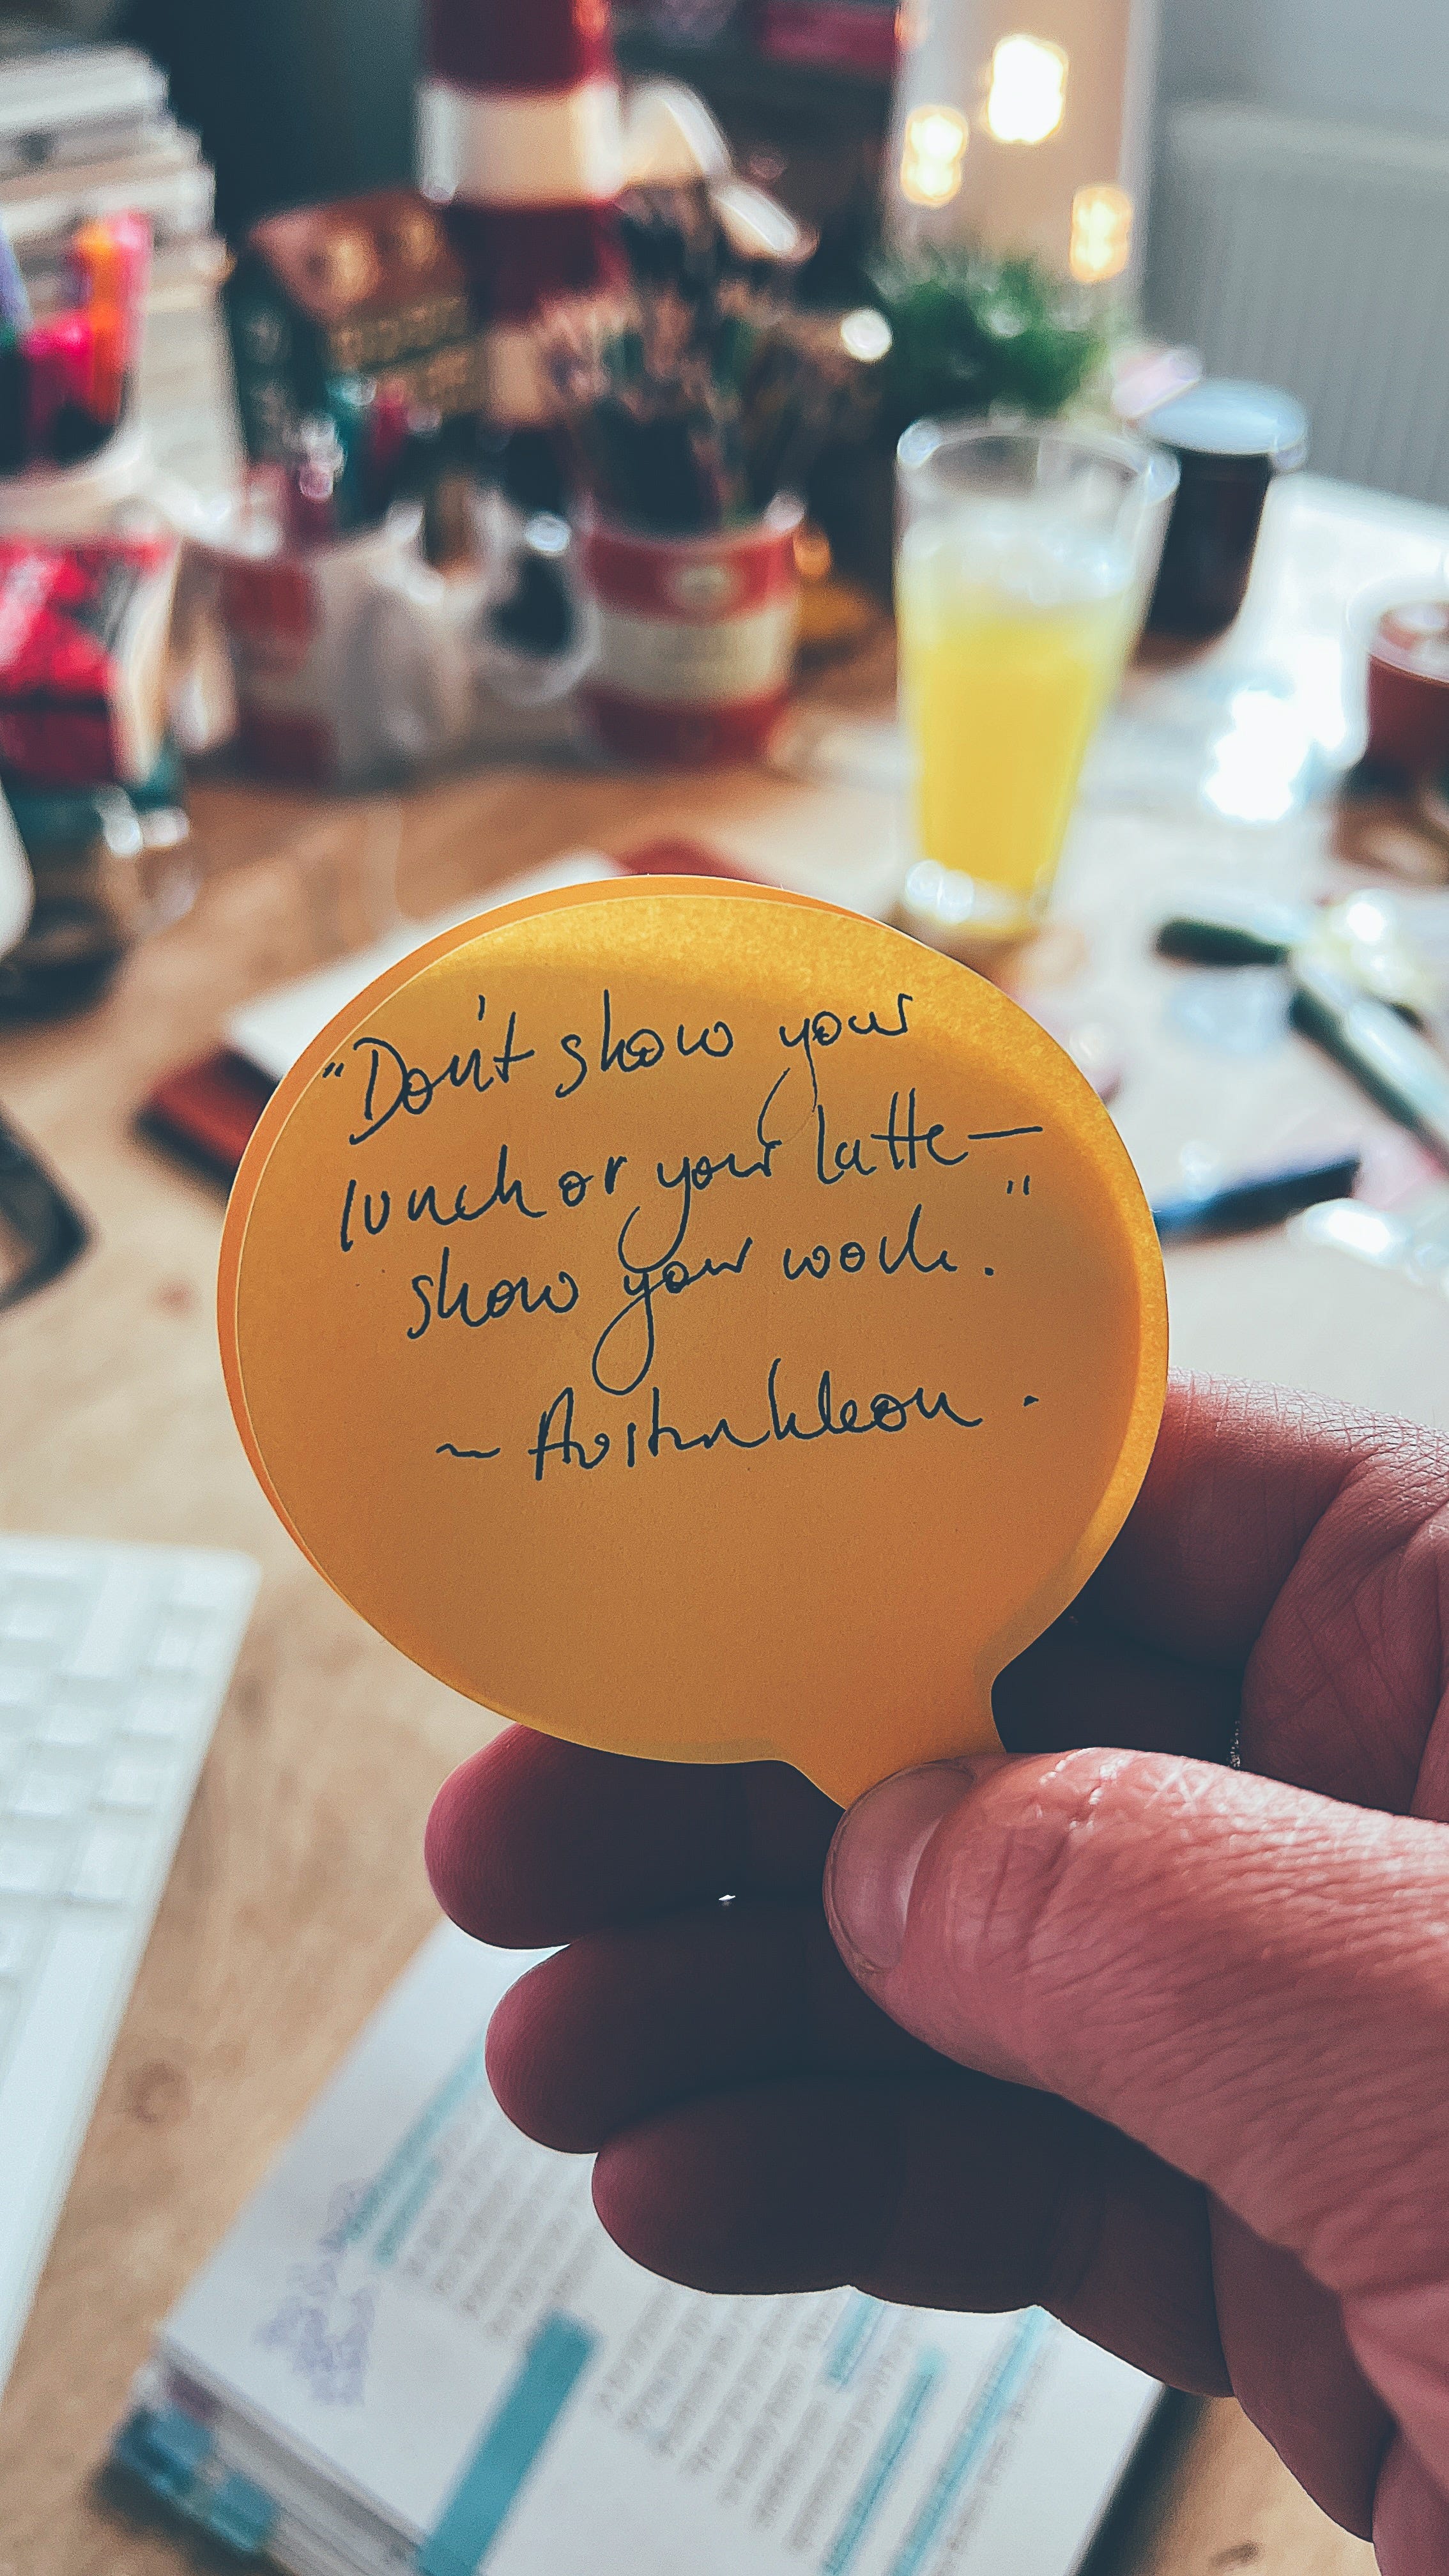 "Don't show your
lunch or your latte—
show your work."
~ Austin Kleon.